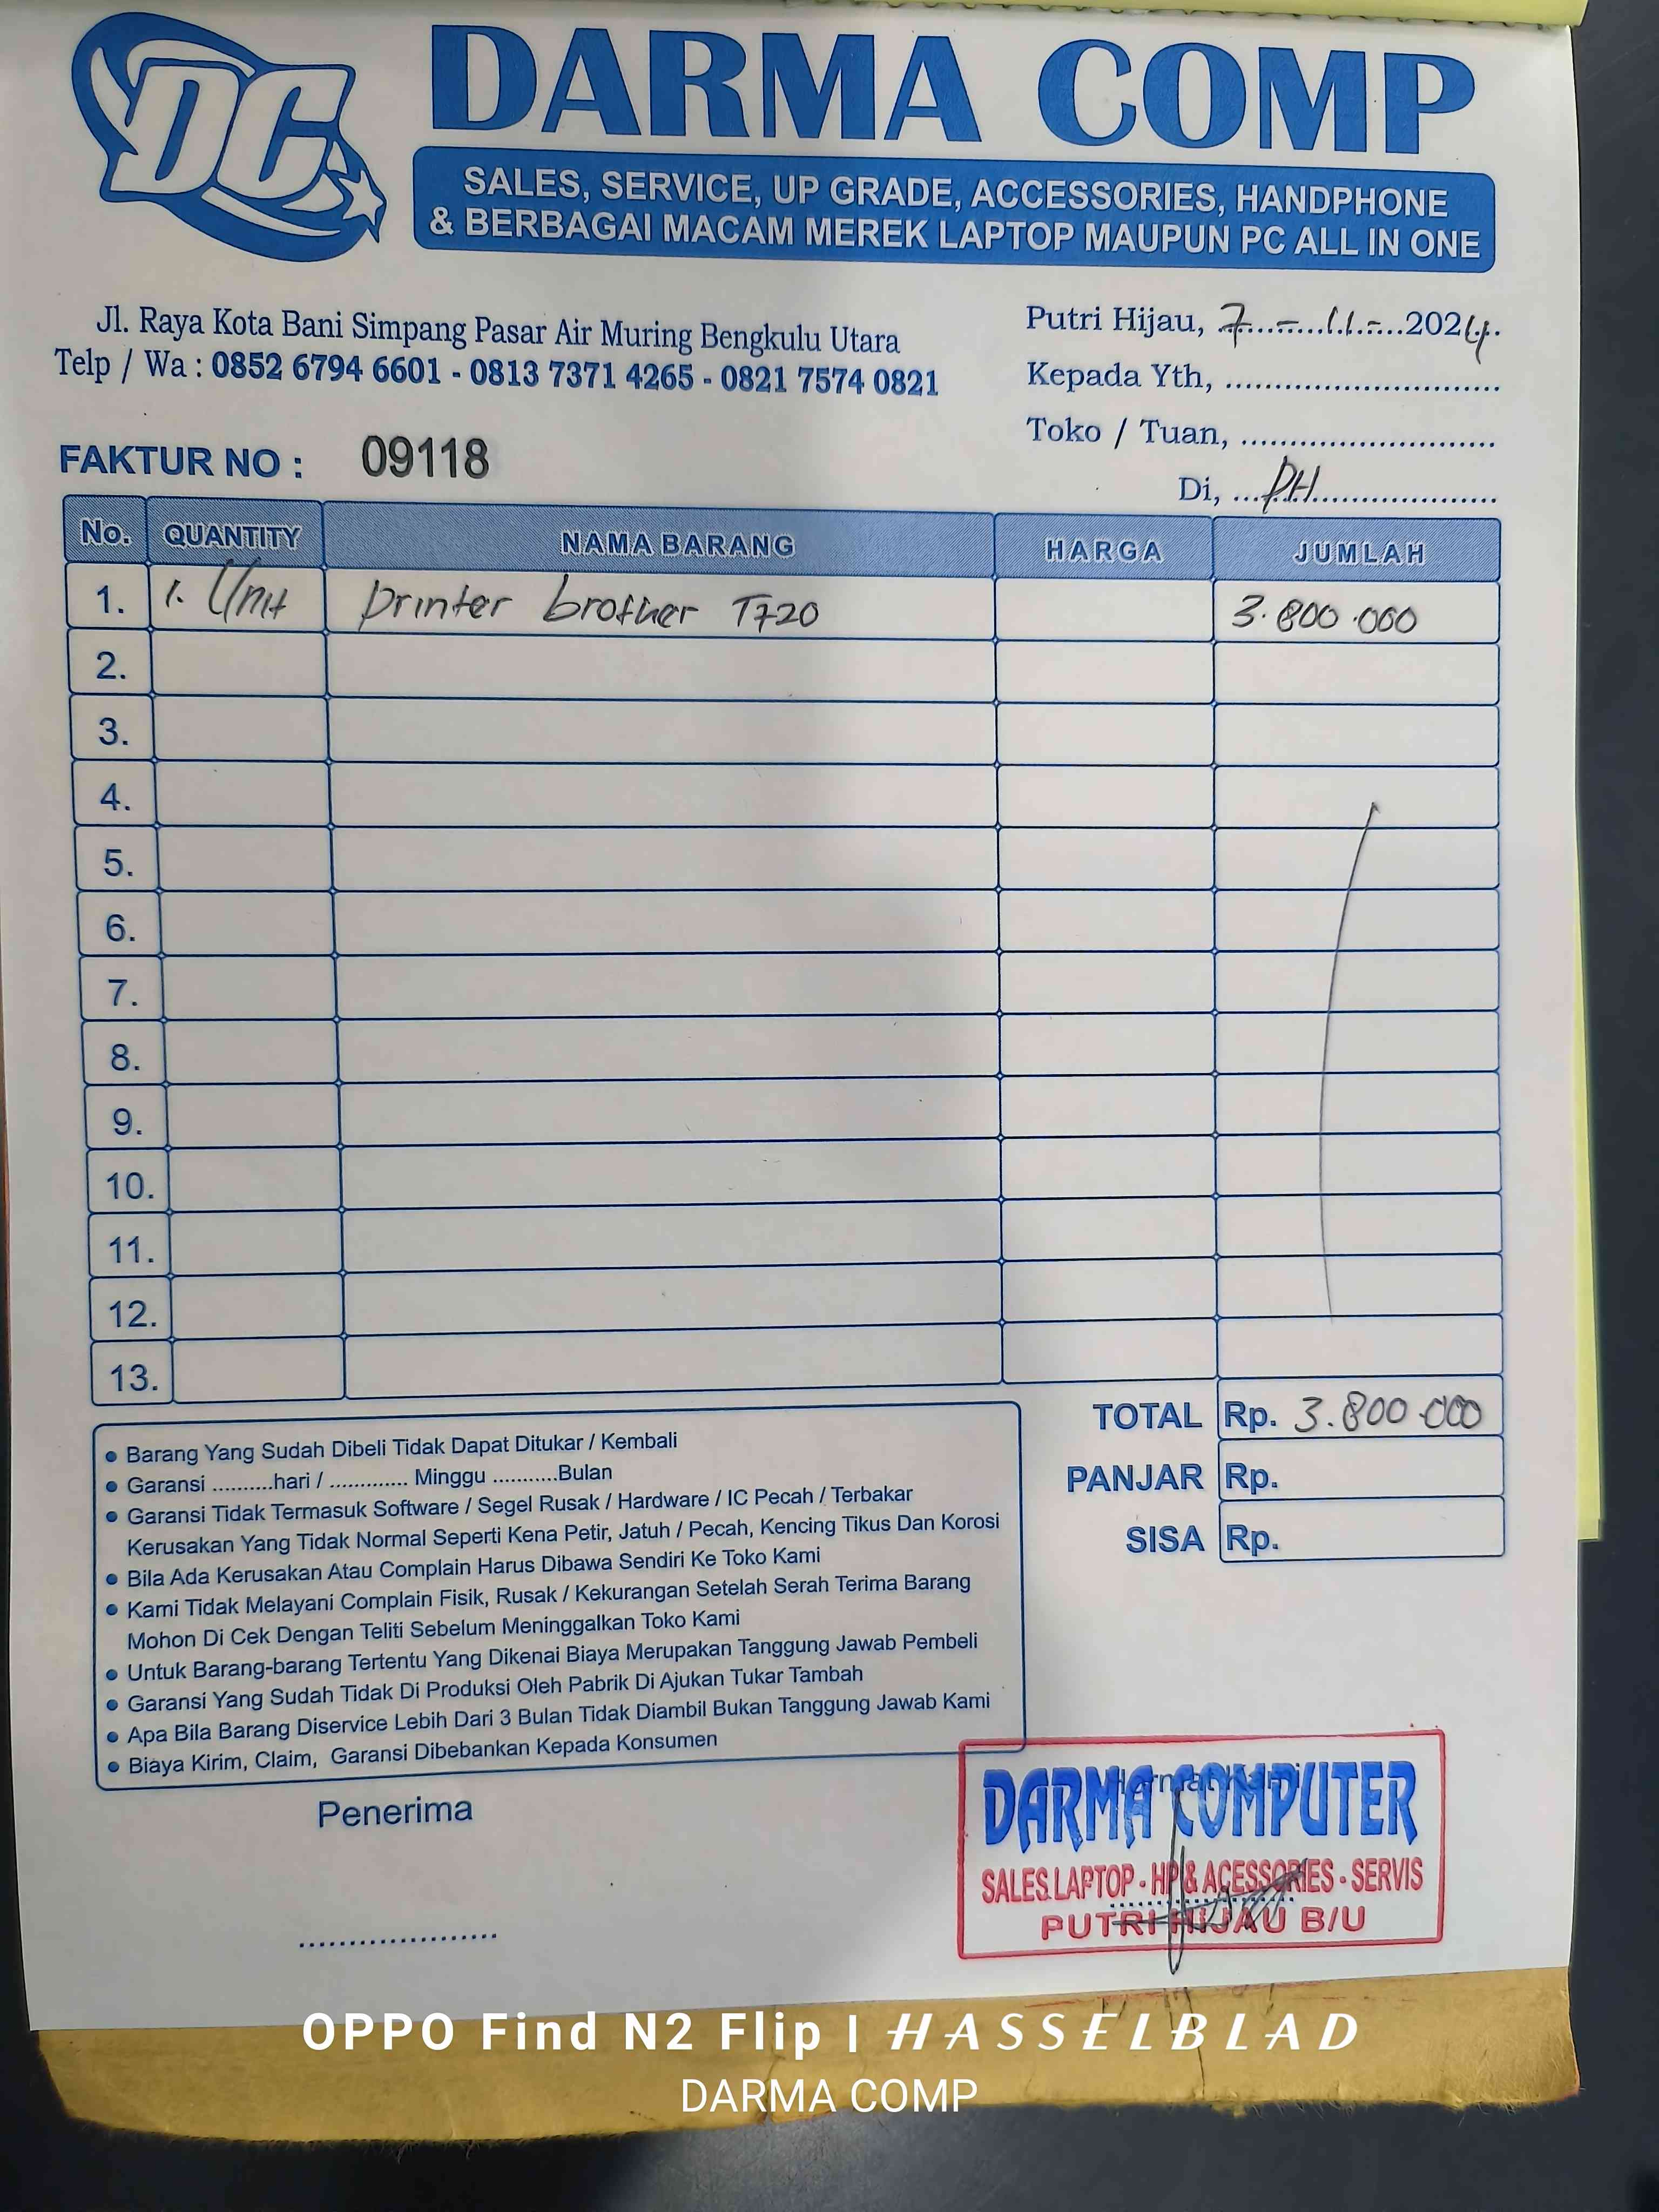 DC
DARMA COMP
SALES, SERVICE, UP GRADE, ACCESSORIES, HANDPHONE
& BERBAGAI MACAM MEREK LAPTOP MAUPUN PC ALL IN ONE
Jl. Raya Kota Bani Simpang Pasar Air Muring Bengkulu Utara
Telp / Wa : 0852 6794 6601 - 0813 7371 4265 - 0821 7574 0821
Putri Hijau, 7 - 11 - 2024
Kepada Yth, ............................
Toko / Tuan, ..........................
Di, ... PH ......................
FAKTUR NO : 09118
No. QUANTITY NAMA BARANG HARGA JUMLAH
1. 1. Unit printer brother T720 3.800.000
2.
3.
4.
5.
6.
7.
8.
9.
10.
11.
12.
13.
TOTAL Rp. 3.800.000
PANJAR Rp.
SISA Rp.
• Barang Yang Sudah Dibeli Tidak Dapat Ditukar / Kembali
• Garansi ..........hari / ............. Minggu ...........Bulan
• Garansi Tidak Termasuk Software / Segel Rusak / Hardware / IC Pecah / Terbakar
Kerusakan Yang Tidak Normal Seperti Kena Petir, Jatuh / Pecah, Kencing Tikus Dan Korosi
• Bila Ada Kerusakan Atau Complain Harus Dibawa Sendiri Ke Toko Kami
• Kami Tidak Melayani Complain Fisik, Rusak / Kekurangan Setelah Serah Terima Barang
Mohon Di Cek Dengan Teliti Sebelum Meninggalkan Toko Kami
• Untuk Barang-barang Tertentu Yang Dikenai Biaya Merupakan Tanggung Jawab Pembeli
• Garansi Yang Sudah Tidak Di Produksi Oleh Pabrik Di Ajukan Tukar Tambah
• Apa Bila Barang Diservice Lebih Dari 3 Bulan Tidak Diambil Bukan Tanggung Jawab Kami
• Biaya Kirim, Claim, Garansi Dibebankan Kepada Konsumen
Penerima
....................
Hormat Kami
DARMA COMPUTER
SALES LAPTOP - HP & ACESSORIES - SERVIS
PUTRI HIJAU B/U
OPPO Find N2 Flip | HASSELBLAD
DARMA COMP